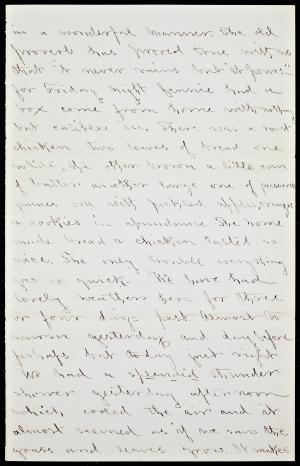 in a wonderful manner. The old
proverb has proved true with us
that "it never rains but it pours"
for Friday night Jennie had a
box come from home with nothing
but eatibles in. There was a roast
chicken two loaves of bread one
white, the other brown a little can
of butter another large one of preserved
quinces one with pickles. apples, oranges
& cookies in abundance The home
made bread & chicken tasted so
nice. The only trouble everything
goes so quick. We have had
lovely weather here for three
or four days past almost to
warm yesterday and day before
perhaps but today just right
We had a splendid thunder
shower yesterday afternoon
which cooled the air and it
almost seemed as if we saw the
grass and leaves grow. It makes